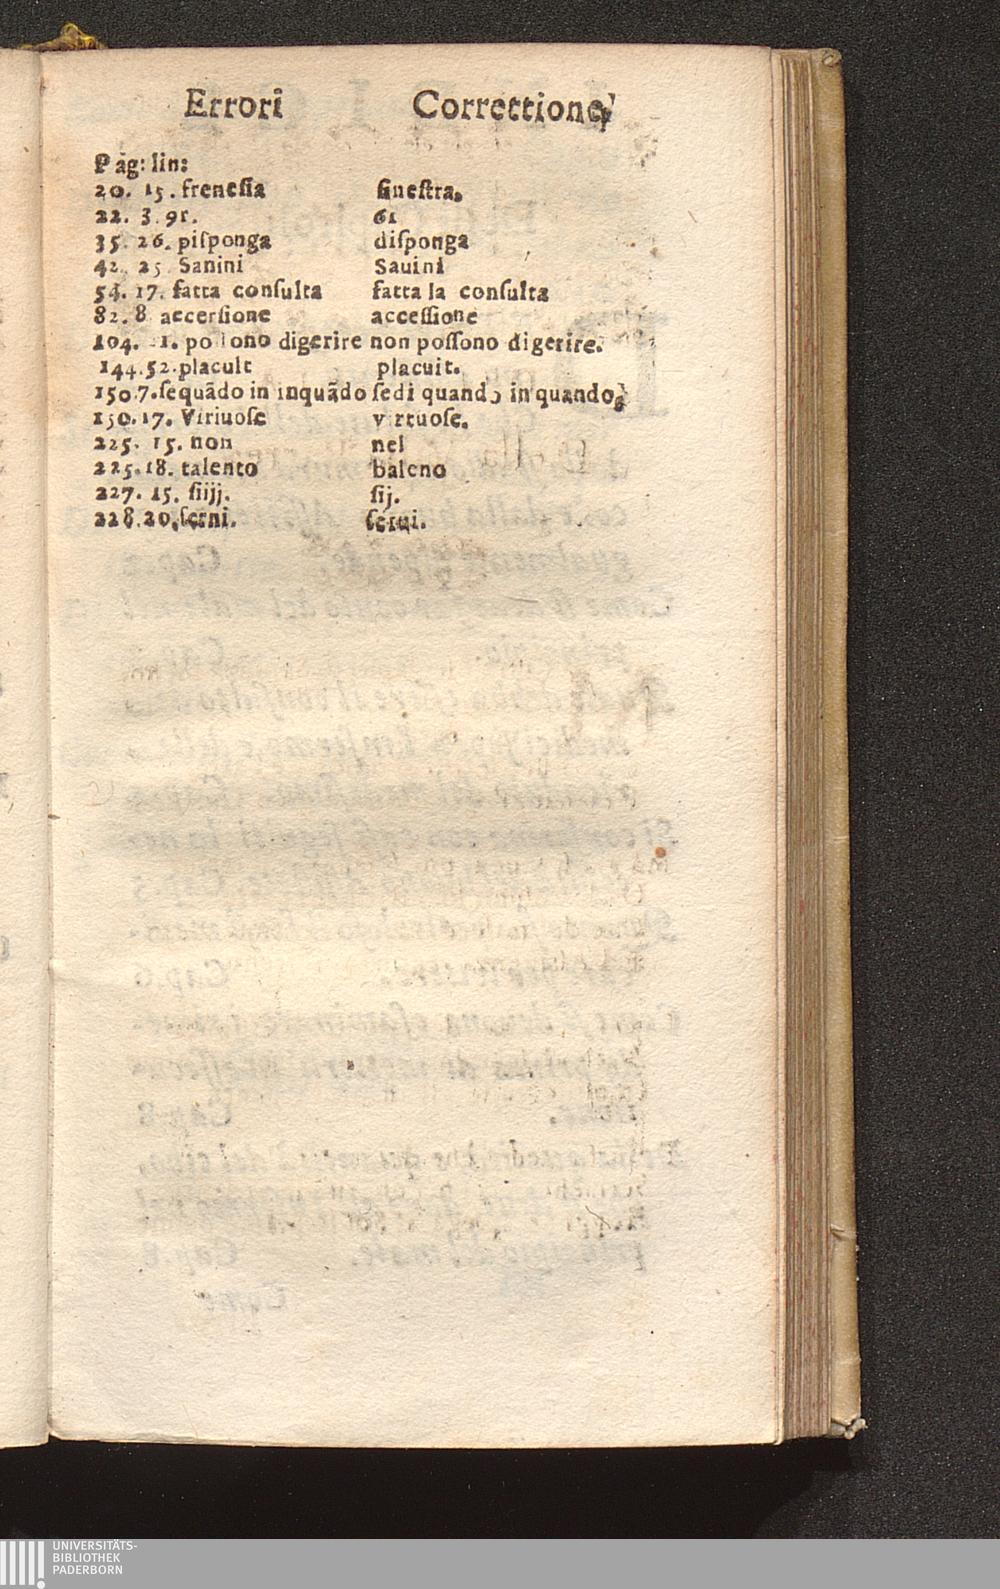 Errori Correttione
Pag: lin:
20. 15. freneſia fineſtra,
22. 3. 91. 61
35. 26. piſponga diſponga
42. 25 Sanini Sauini
54. 17. fatta conſulta fatta la conſulta
82. 8 accerſione acceſſione
104. 1. poſſono digerire non poſſono digerire.
144. 52. placult placuit.
150. 7. ſequãdo in inquãdo ſedi quando in quando
150. 17. Viriuoſe virtuoſe.
225. 15. non nel
225. 18. talento baleno
227. 15. ſiijj. ſij.
228. 20. ſerni. ſerui.
UNIVERSITÄTS-
BIBLIOTHEK
PADERBORN